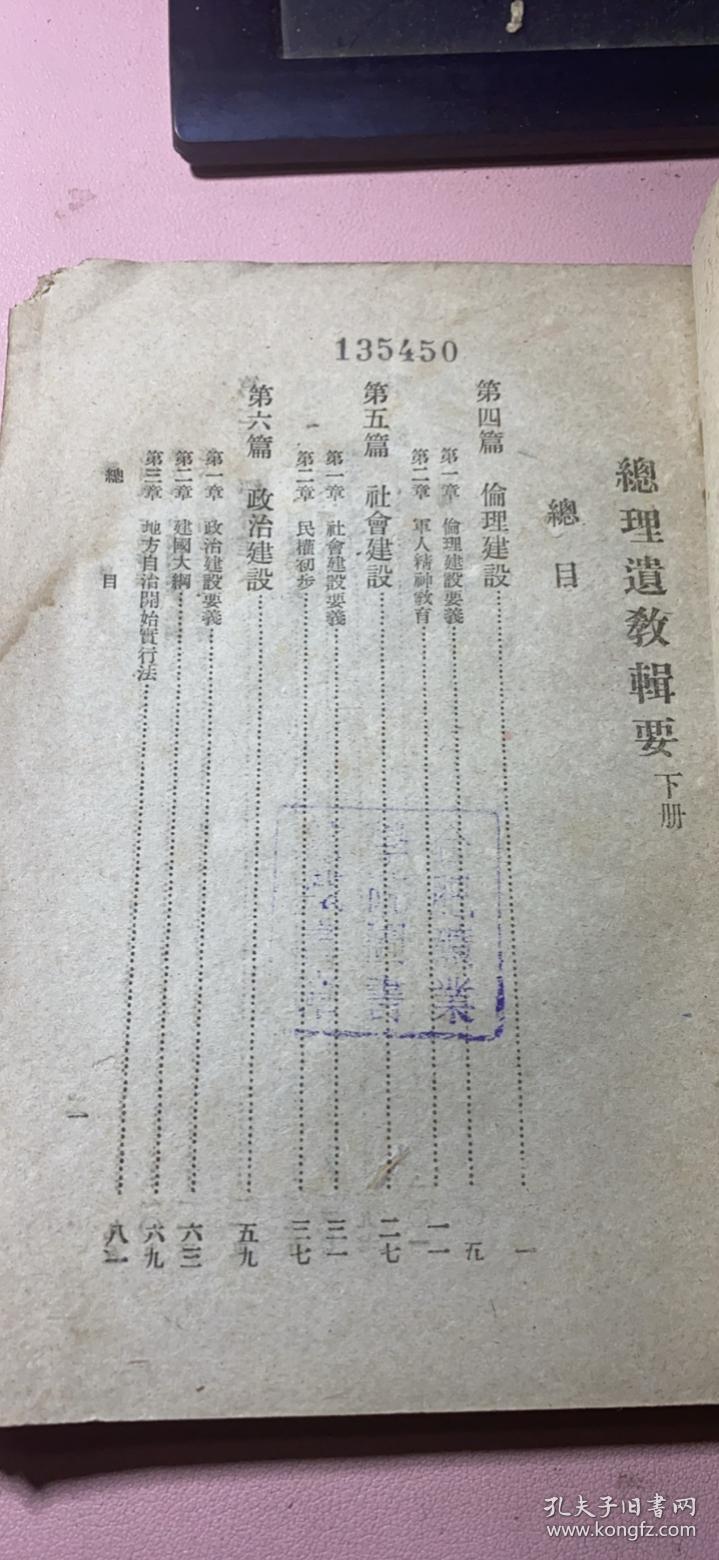 135450
總理遺教輯要 下册
總目
第四篇 倫理建設……一
第一章 倫理建設要義……五
第二章 軍人精神教育……一一
第五篇 社會建設……二七
第一章 社會建設要義……三一
第二章 民權初步……三七
第六篇 政治建設……五九
第一章 政治建設要義……六三
第二章 建國大綱……六九
第三章 地方自治開始實行法……八一
總目 一
孔夫子旧书网
www.kongfz.com